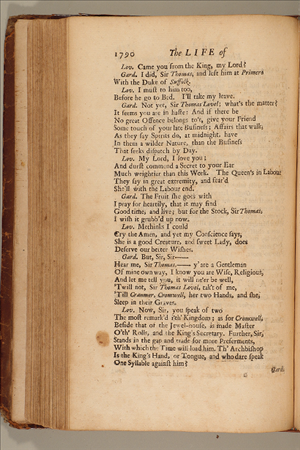 1790 The LIFE of
Lov. Came you from the King, my Lord?
Gard. I did, Sir Thomas, and left him at Primero
With the Duke of Suffolk.
Lov. I must to him too,
Before he go to Bed. I'll take my leave.
Gard. Not yet, Sir Thomas Lovel; what's the matter?
It seems you are in haste: And if there be
No great Offence belongs to't, give your Friend
Some touch of your late Business: Affairs that walk,
As they say Spirits do, at midnight, have
In them a wilder Nature, than the Business
That seeks dispatch by Day.
Lov. My Lord, I love you;
And durst commend a Secret to your Ear
Much weightier than this Work. The Queen's in Labour
They say in great extremity, and fear'd
She'll with the Labour end.
Gard. The Fruit she goes with
I pray for heartily, that it may find
Good time, and live; but for the Stock, Sir Thomas,
I wish it grubb'd up now.
Lov. Methinks I could
Cry the Amen, and yet my Conscience says,
She is a good Creature, and sweet Lady, does
Deserve our better Wishes.
Gard. But, Sir, Sir——
Hear me, Sir Thomas,—— y'are a Gentleman
Of mine own way, I know you are Wise, Religious,
And let me tell you, it will ne'er be well,
'Twill not, Sir Thomas Lovel, tak't of me,
'Till Cranmer, Cromwell, her two Hands, and she,
Sleep in their Graves.
Lov. Now, Sir, you speak of two
The most remark'd i'th' Kingdom; as for Cromwell,
Beside that of the Jewel-house, is made Master
O'th' Rolls, and the King's Secretary. Further, Sir,
Stands in the gap and trade for more Preferments,
With which the Time will load him. Th' Archbishop
Is the King's Hand, or Tongue, and who dare speak
One Syllable against him?
Gard.